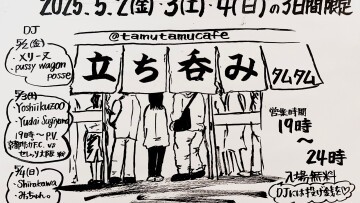 2025.5.2(金)・3(土)・4(日)の3日間限定
@tamutamucafe
立ち呑み
タムタム
DJ
5/2(金)
・メリーヌ
・pussy wagon
posse
5/3(土)
・Yoshiikuzoo
・Yudai Sugiyama
19時〜P.V.
京都サンガF.C. vs
セレッソ大阪
5/4(日)
・Shirakawa
・みっちゃん。
営業時間
19時
〜
24時
入場無料
DJには投げ銭を♡